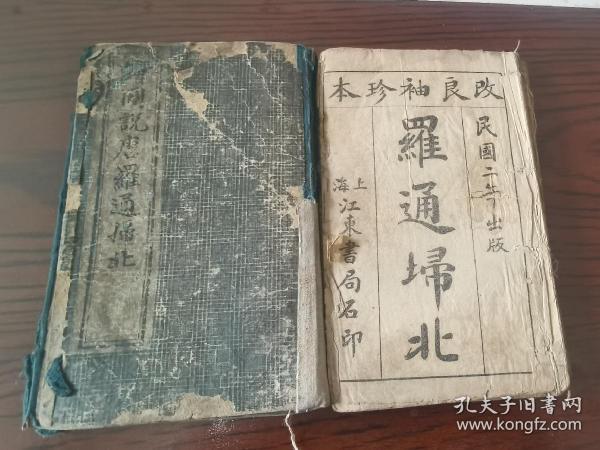 圖說唐羅通掃北
改良袖珍本
民國二年出版
羅通埽北
上海
江東書局石印
孔夫子旧书网
www.kongfz.com